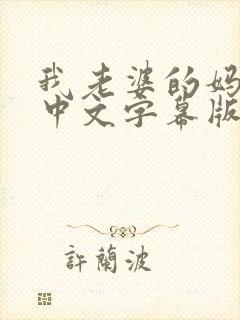 我老婆的妈
中文字幕版
許蘭波